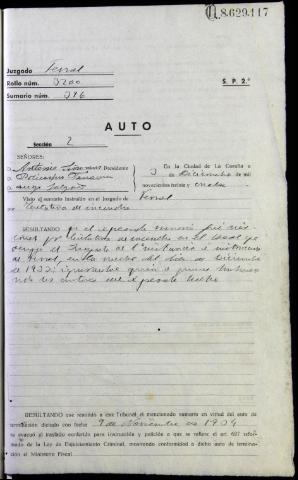 A.8.629.117
Juzgado Ferrol
Rollo núm. 1200
Sumario núm. 316
S. P. 2.ª
AUTO
Sección 2
SEÑORES:
Antonio Presidente
En la Ciudad de La Coruña a
3 de Diciembre de mil
novecientos treinta y cuatro
Visto el sumario instruido en el Juzgado de Ferrol
por tentativa de incendio
RESULTANDO que el expresado sumario fué
por tentativa de incendio en el local que
ocupa el Juzgado de 1.ª instancia e instrucción
de Ferrol, en la noche del día de Diciembre
de 1933; ignorándose quien o quienes hubiesen
sido los autores del expresado hecho
RESULTANDO que remitido a este Tribunal el mencionado sumario en virtud del auto de
terminación dictado con fecha 9 de Noviembre de 1934
se evacuó el traslado conferido para instrucción y petición a que se refiere el art. 627 refor-
mado de la Ley de Enjuiciamiento Criminal, mostrando conformidad a dicho auto de termina-
ción el Ministerio Fiscal